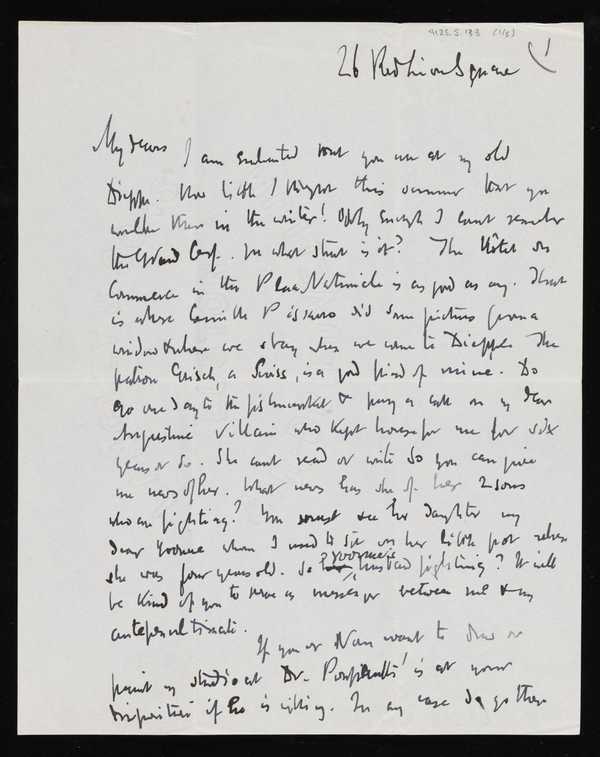 9125.5.133 (1/3)
1
26 Red Lion Square
My dears I am enchanted that you are at my old
Dieppe. How little I thought this summer that you
would be there in the winter! Oddly enough I can't remember
the Grand Cerf. In what street is it? The Hôtel du
Commerce in the Place Nationale is as good as any. That
is where Camille Pissarro did some pictures from a
window & where we stay when we come to Dieppe. The
patron Grisch, a Swiss, is a good friend of mine. Do
go one day to the fishmarket & pay a call on my dear
Augustine Villain who kept house for me for six
years or so. She can't read or write so you can give
me news of her. What news has she of her 2 sons
who are fighting? You must see her daughter my
dear Yvonne whom I used to sit on her little pot when
she was four years old. Is Yvonne's husband fighting? It will
be kind of you to serve as messenger between me & my
antepenultimate.
If you or Nan want to draw or
paint my studio at Dr. is at your
disposition if he is willing. In any case do go there